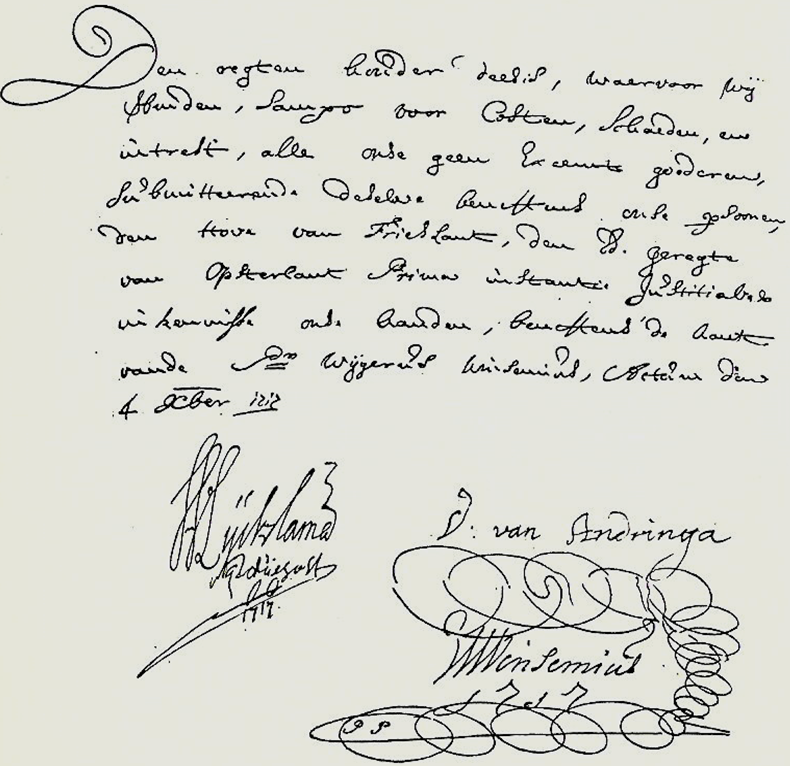 Den regten houder deeses, waervoor wij
sbinden, sampo voor Costen, Schaeden, en
intrest, alle onse geen Excemte goederen,
Submitteerende deselve beneffens onse persoonen,
den Hove van Frieslant, den E. geregte
van Opsterlant Prima instantie Justitiabel
in kennisse onse handen, beneffens de hant
vande Wijgerus Winsemius, Actum den
4 Xber 1717
Lijcklama
1717
D: van Andringa
WWinsemius
1717